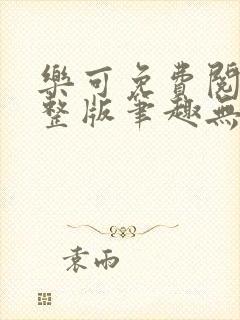 樂可免費閱
整版筆趣無
袁雨